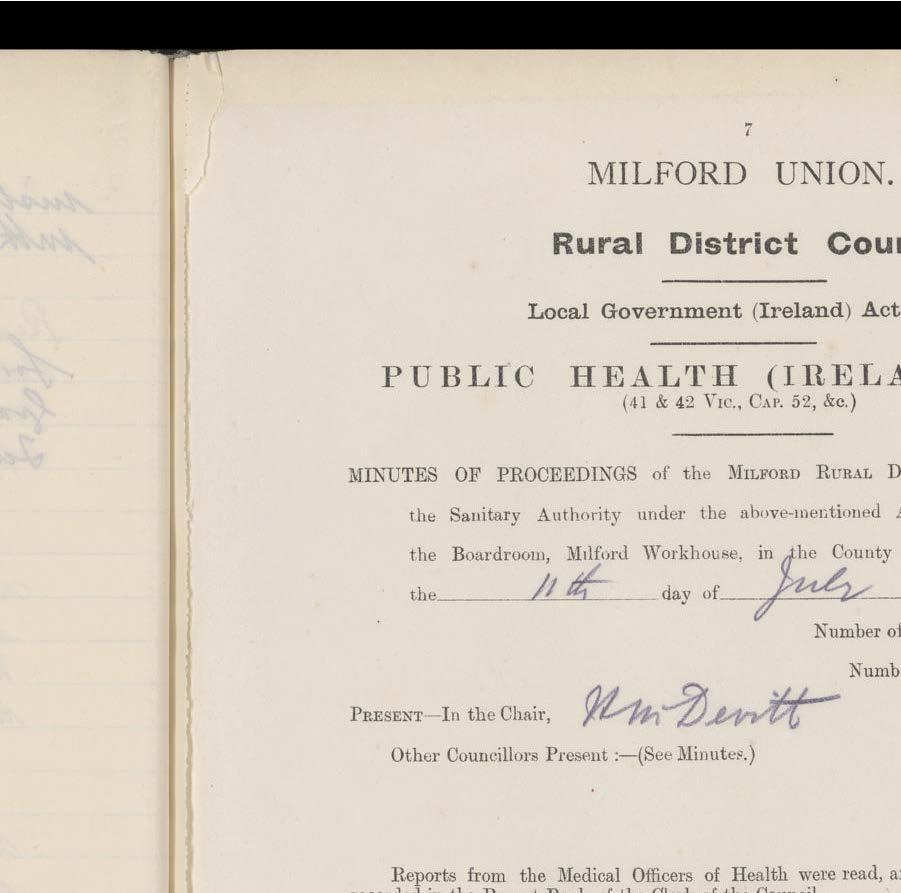 7
MILFORD UNION.
Rural District Cou
Local Government (Ireland) Act
PUBLIC HEALTH (IRELA
(41 & 42 Vic., Cap. 52, &c.)
MINUTES OF PROCEEDINGS of the Milford Rural D
the Sanitary Authority under the above-mentioned A
the Boardroom, Milford Workhouse, in the County
the 11th day of July
Number of
Numb
Present—In the Chair, McDevitt
Other Councillors Present :—(See Minutes.)
Reports from the Medical Officers of Health were read, a
recorded in the Report Book of the Clerk of the Council